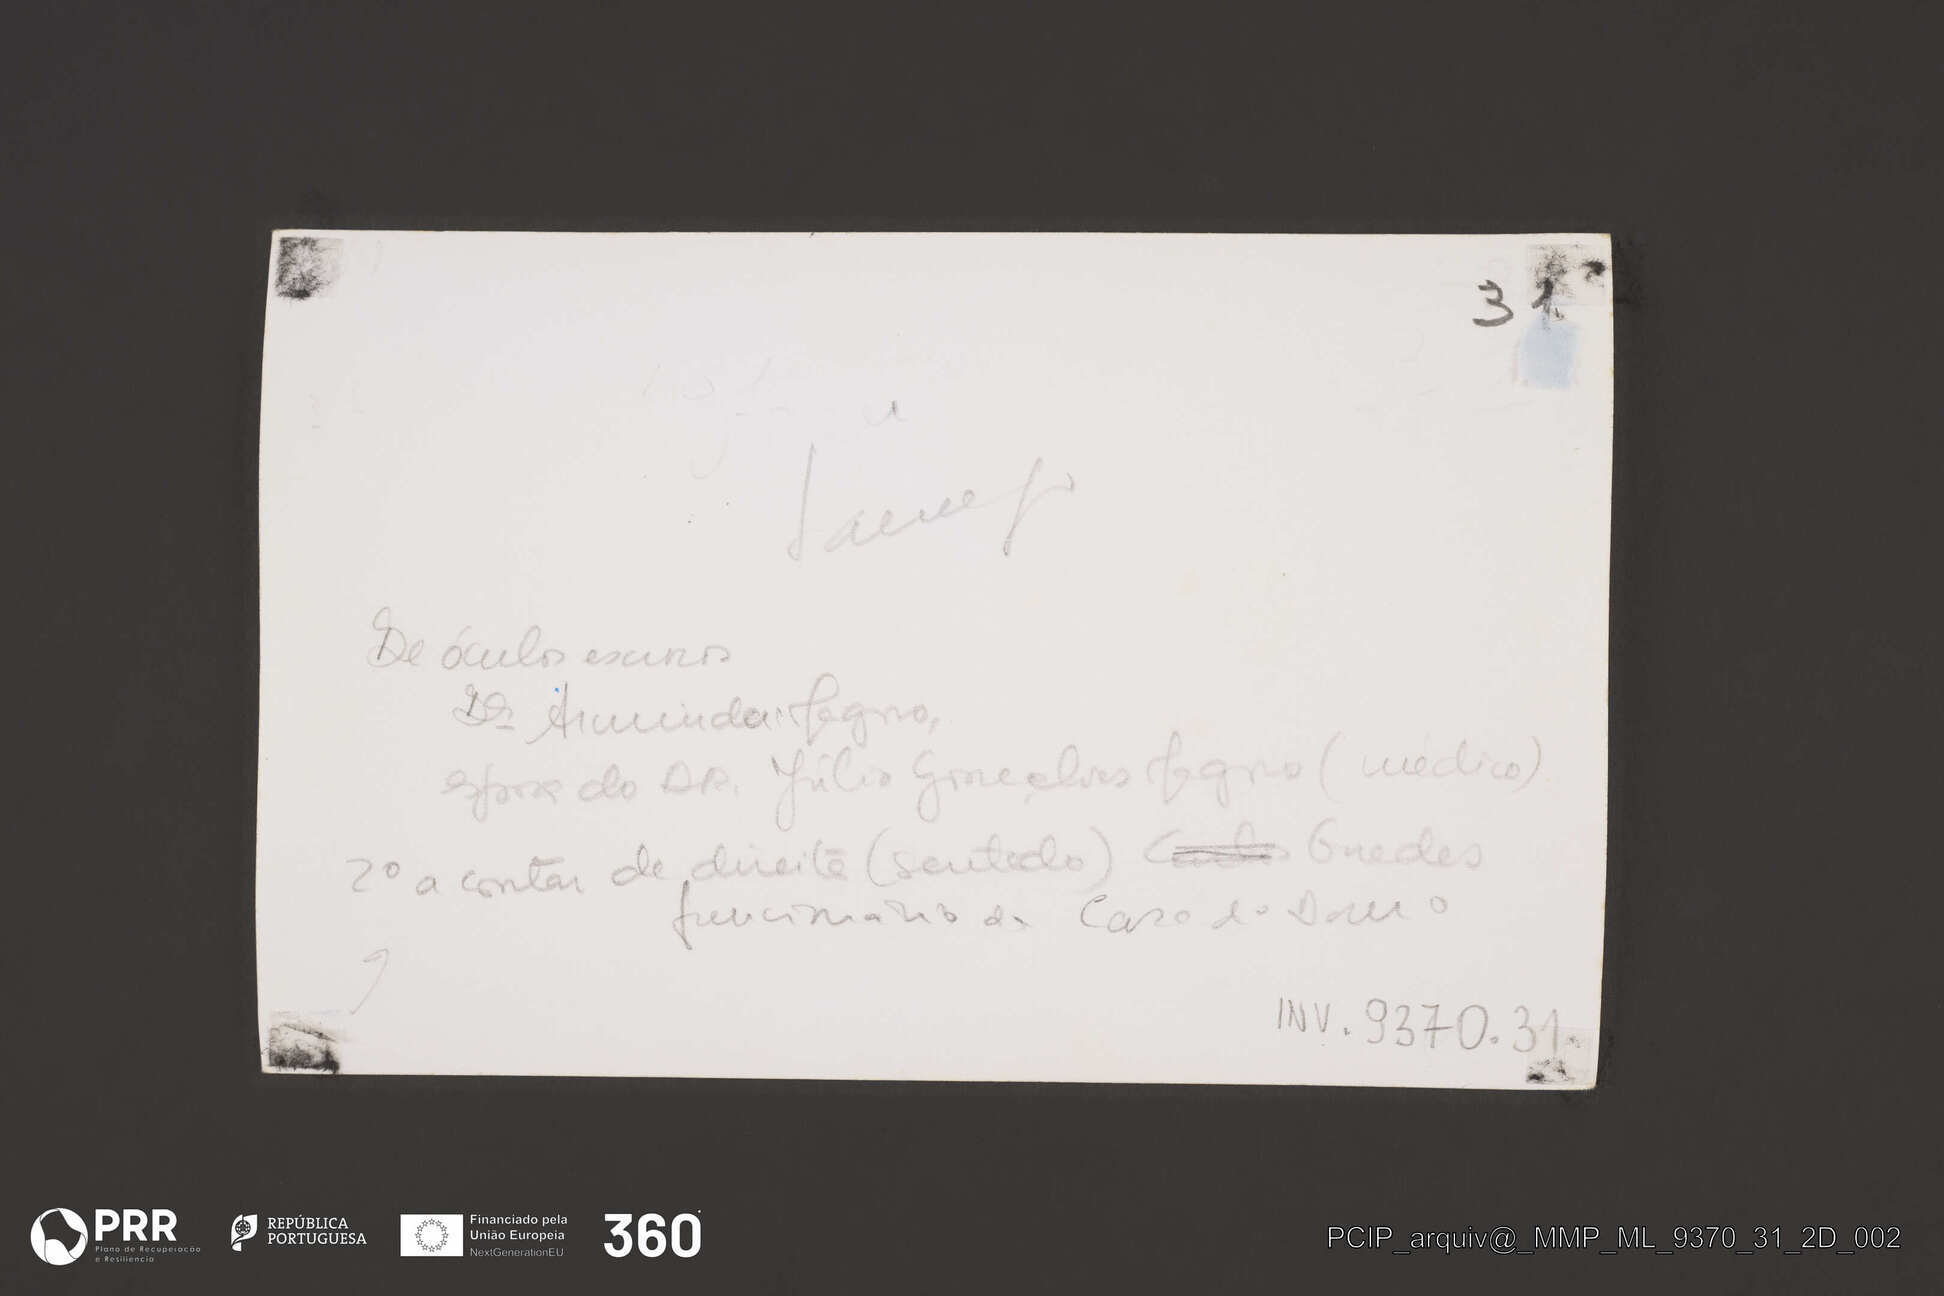 31
De óculos escuros
Drª Arminda
esposa do DR. Júlio Gonçalves (médico)
2º a contar de direita (sentado) Guedes
funcionário da Casa do Douro
INV. 9370.31
PRR
Plano de Recuperação
e Resiliência
REPÚBLICA
PORTUGUESA
Financiado pela
União Europeia
NextGenerationEU
360
PCIP_arquiv@_MMP_ML_9370_31_2D_002